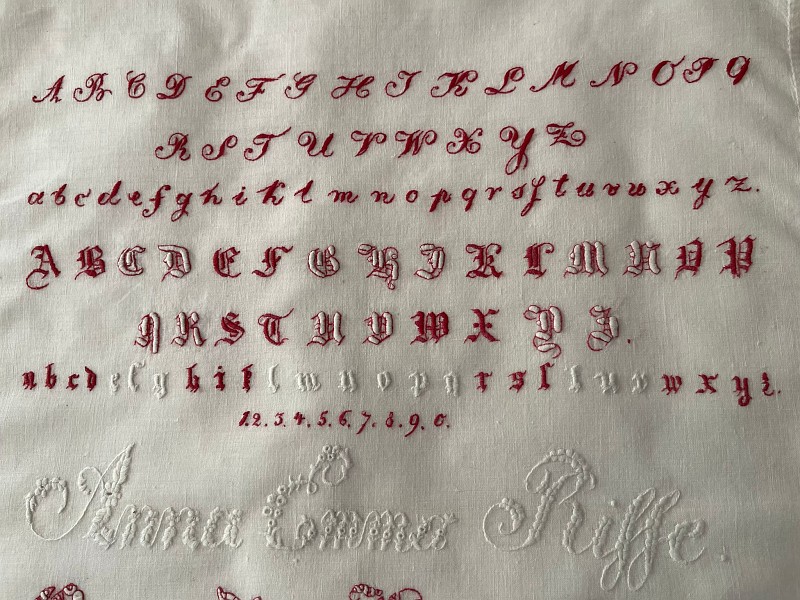 A B C D E F G H I K L M N O P Q
R S T U V W X Y Z
a b c d e f g h i k l m n o p q r s ſ t u v w x y z.
A B C D E F G H I K L M N O P
Q R S T U V W X Y Z.
a b c d e f g h i k l m n o p q r s ſ t u v w x y z.
1.2.3.4.5.6.7.8.9.0.
Anna Emma Riffe.